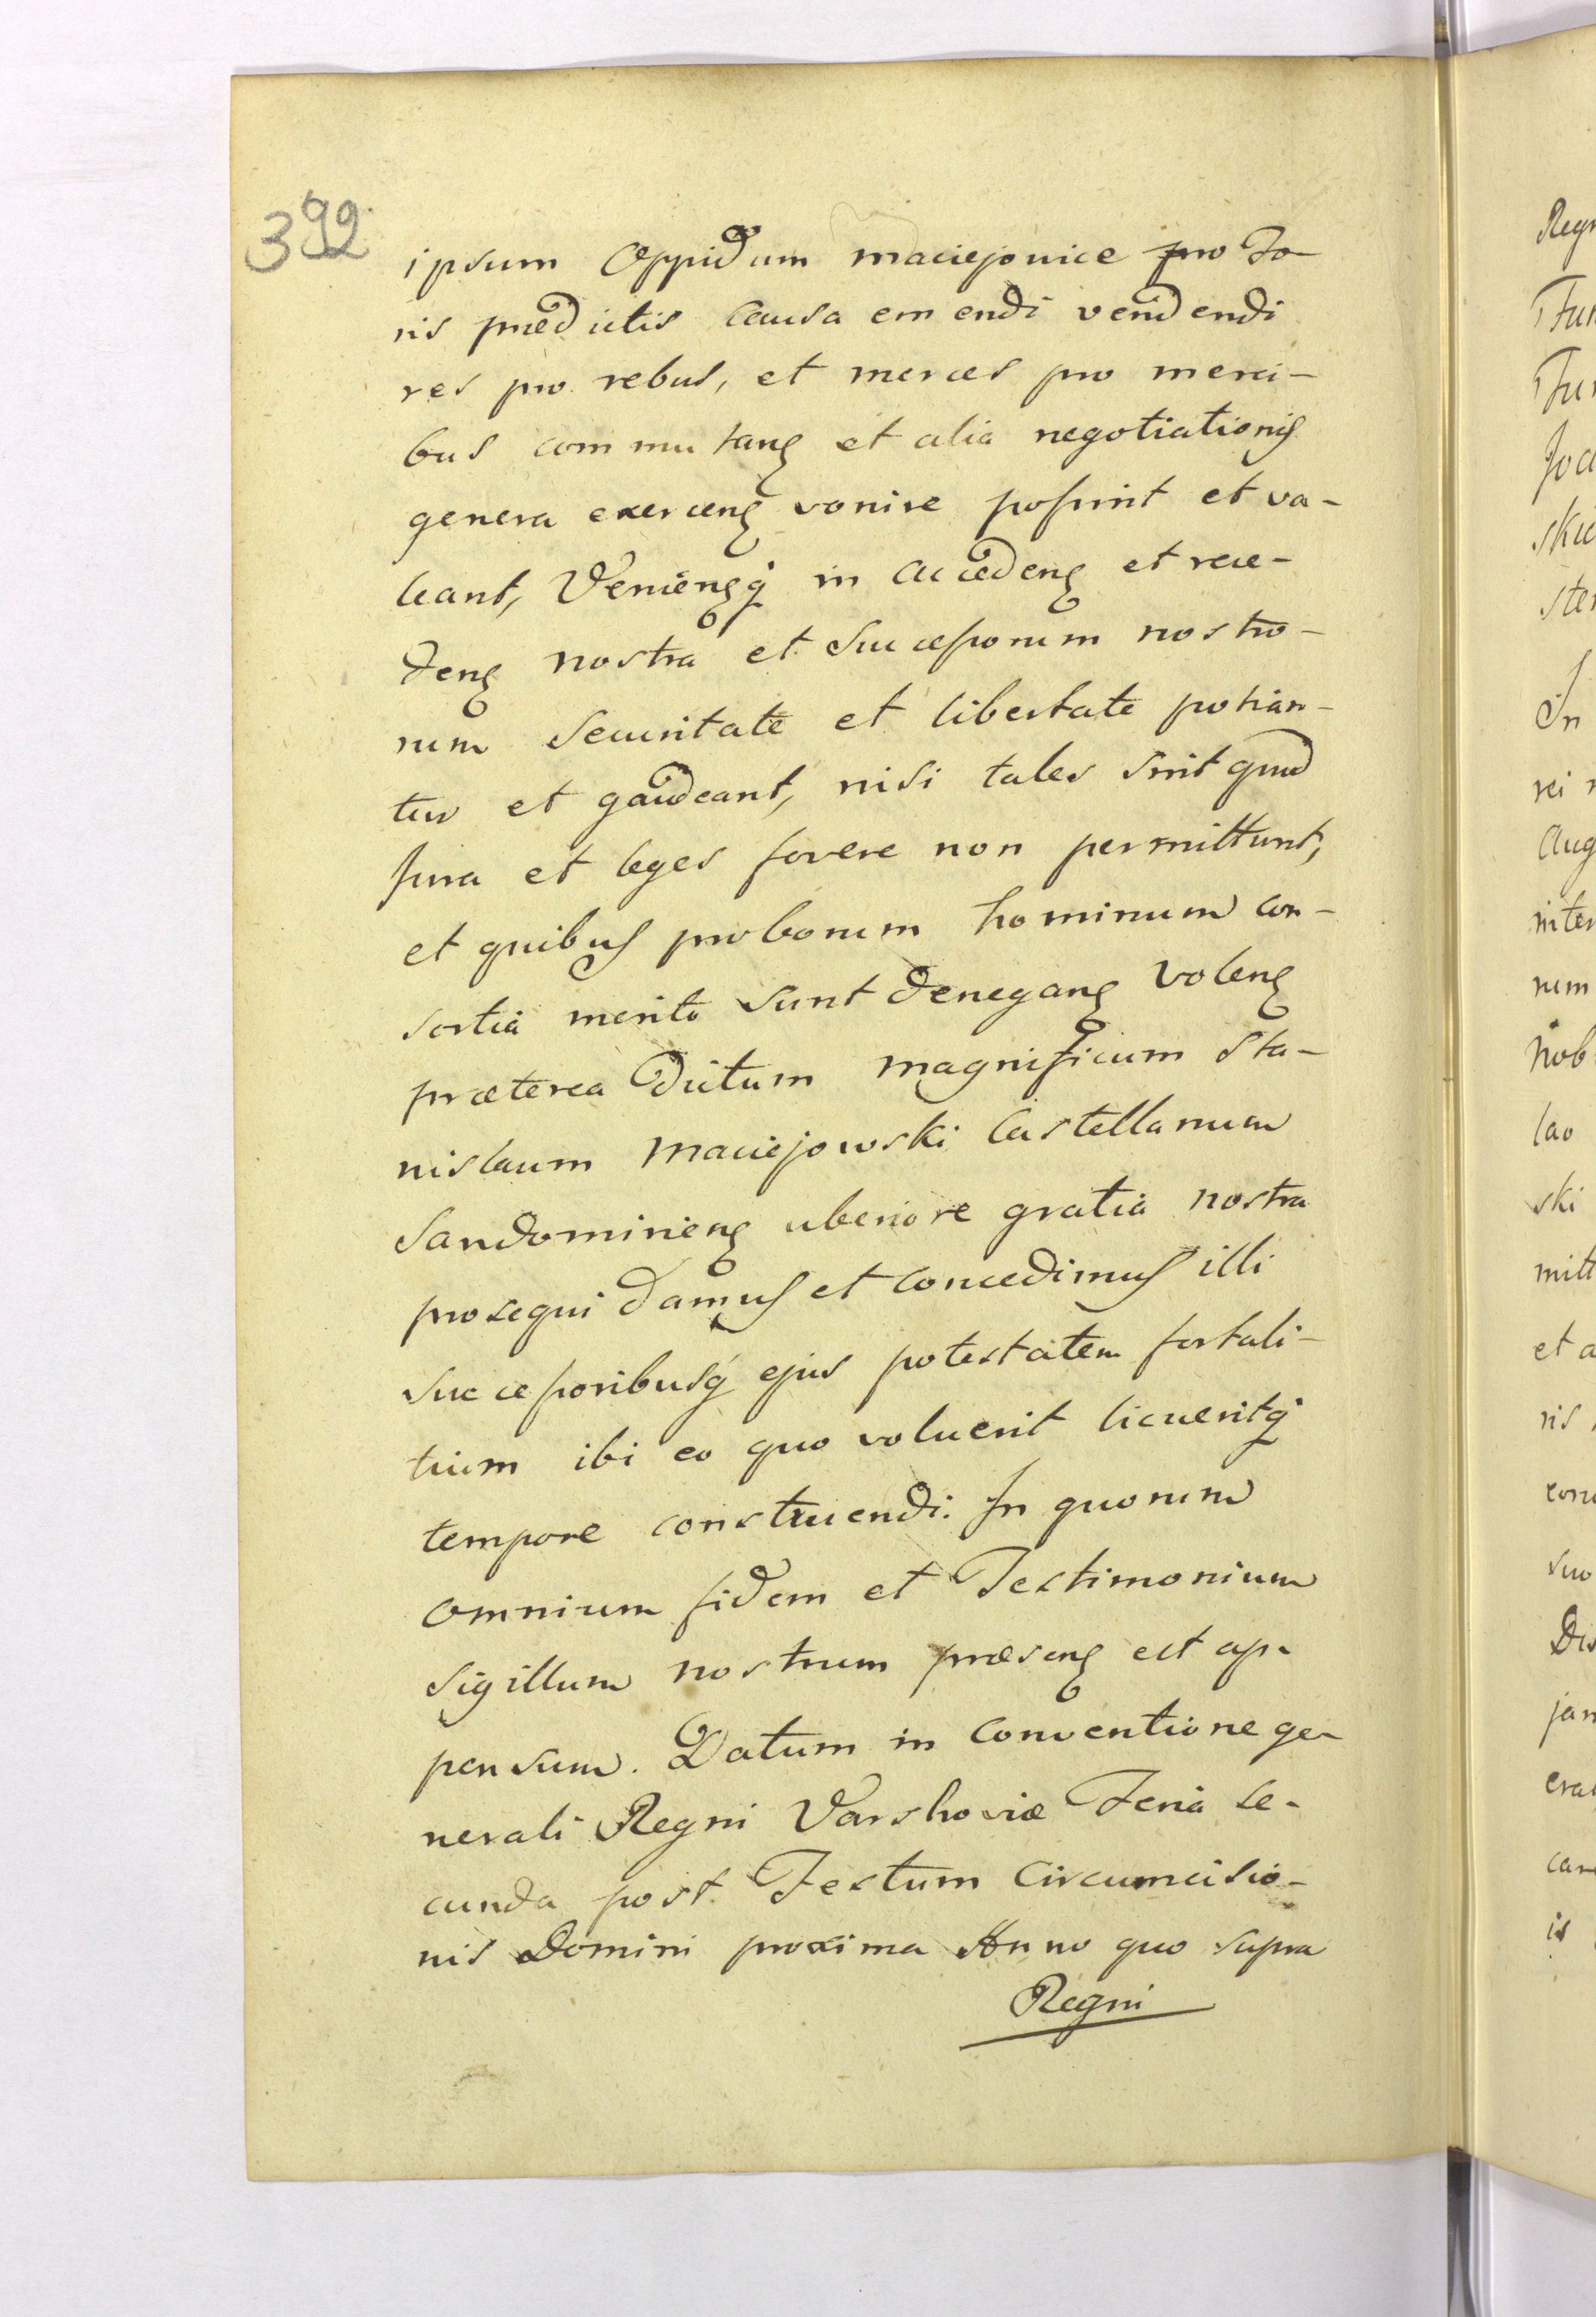 392
ipsum Oppidum maciejovice pro Fo-
ris prædictis causa emendi vendendi
res pro rebus, et merces pro merci-
bus commutanȝ et alia negotiationis
genera exercenȝ venire possint et va-
leant, Venienȝq́ in accedenȝ et rece-
denȝ nostra et Successorum nostro-
rum Securitate et libertate potian-
tur et gaudeant, nisi tales sint quod
Jura et leges fovere non permittunt,
et quibus proborum hominum con-
sortia merito sunt deneganȝ Volenȝ
præterea dictum magnificum Sta-
nislaum Maciejowski Castellanum
Sandomirienȝ uberiore gratia nostra
prosequi damus et concedimus illi
successoribusq́ ejus potestatem fortali-
tium ibi eo quo voluerit licueritq́
tempore construendi. In quorum
omnium fidem et Testimonium
Sigillum nostrum præsenȝ est ap-
pensum. Datum in Conventione ge-
nerali Regni Varshoviæ Feria se-
cunda post Festum Circumcisio-
nis Domini proxima Anno quo supra
Regni